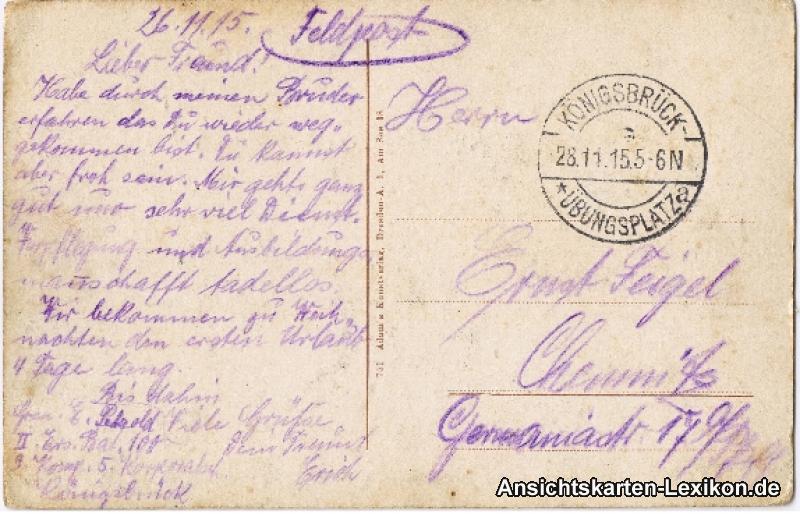 26.11.15.
Feldpost
Lieber Freund!
Habe durch meinen Bruder
erfahren das Du wieder weg-
gekommen bist. Du kannst
aber froh sein. Mir gehts ganz
gut nur sehr viel Dienst.
Verpflegung und Ausbildungs
mannschafft tadellos.
Wir bekommen zu Weih-
nachten den ersten Urlaub
4 Tage lang.
Bis dahin
Gren. E. Petzold Viele Grüße
II. Ers. Bat. 100 Dein Freund
3. Komp. 5. Korporalsch. Erich
Königsbrück
741 Adam's Kunstverlag, Dresden-A. 1, Am See 18
KÖNIGSBRÜCK-
a
28.11.15.5-6N
* ÜBUNGSPLATZ a
Herrn
Ernst Feigel
Chemnitz
Germaniastr. 17
Ansichtskarten-Lexikon.de